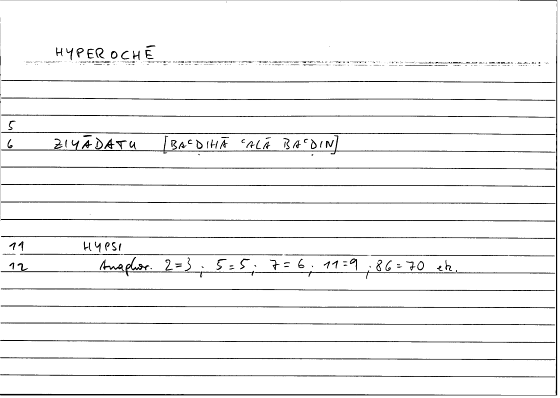 HYPEROCHĒ
5
6 ZIYĀDATU [BAꜤḌIHĀ ꜤALĀ BAꜤḌIN]
11 HYPSI
12 Anaphor. 2=3 ; 5=5 ; 7=6 ; 11=9 ; 86=70 etc.